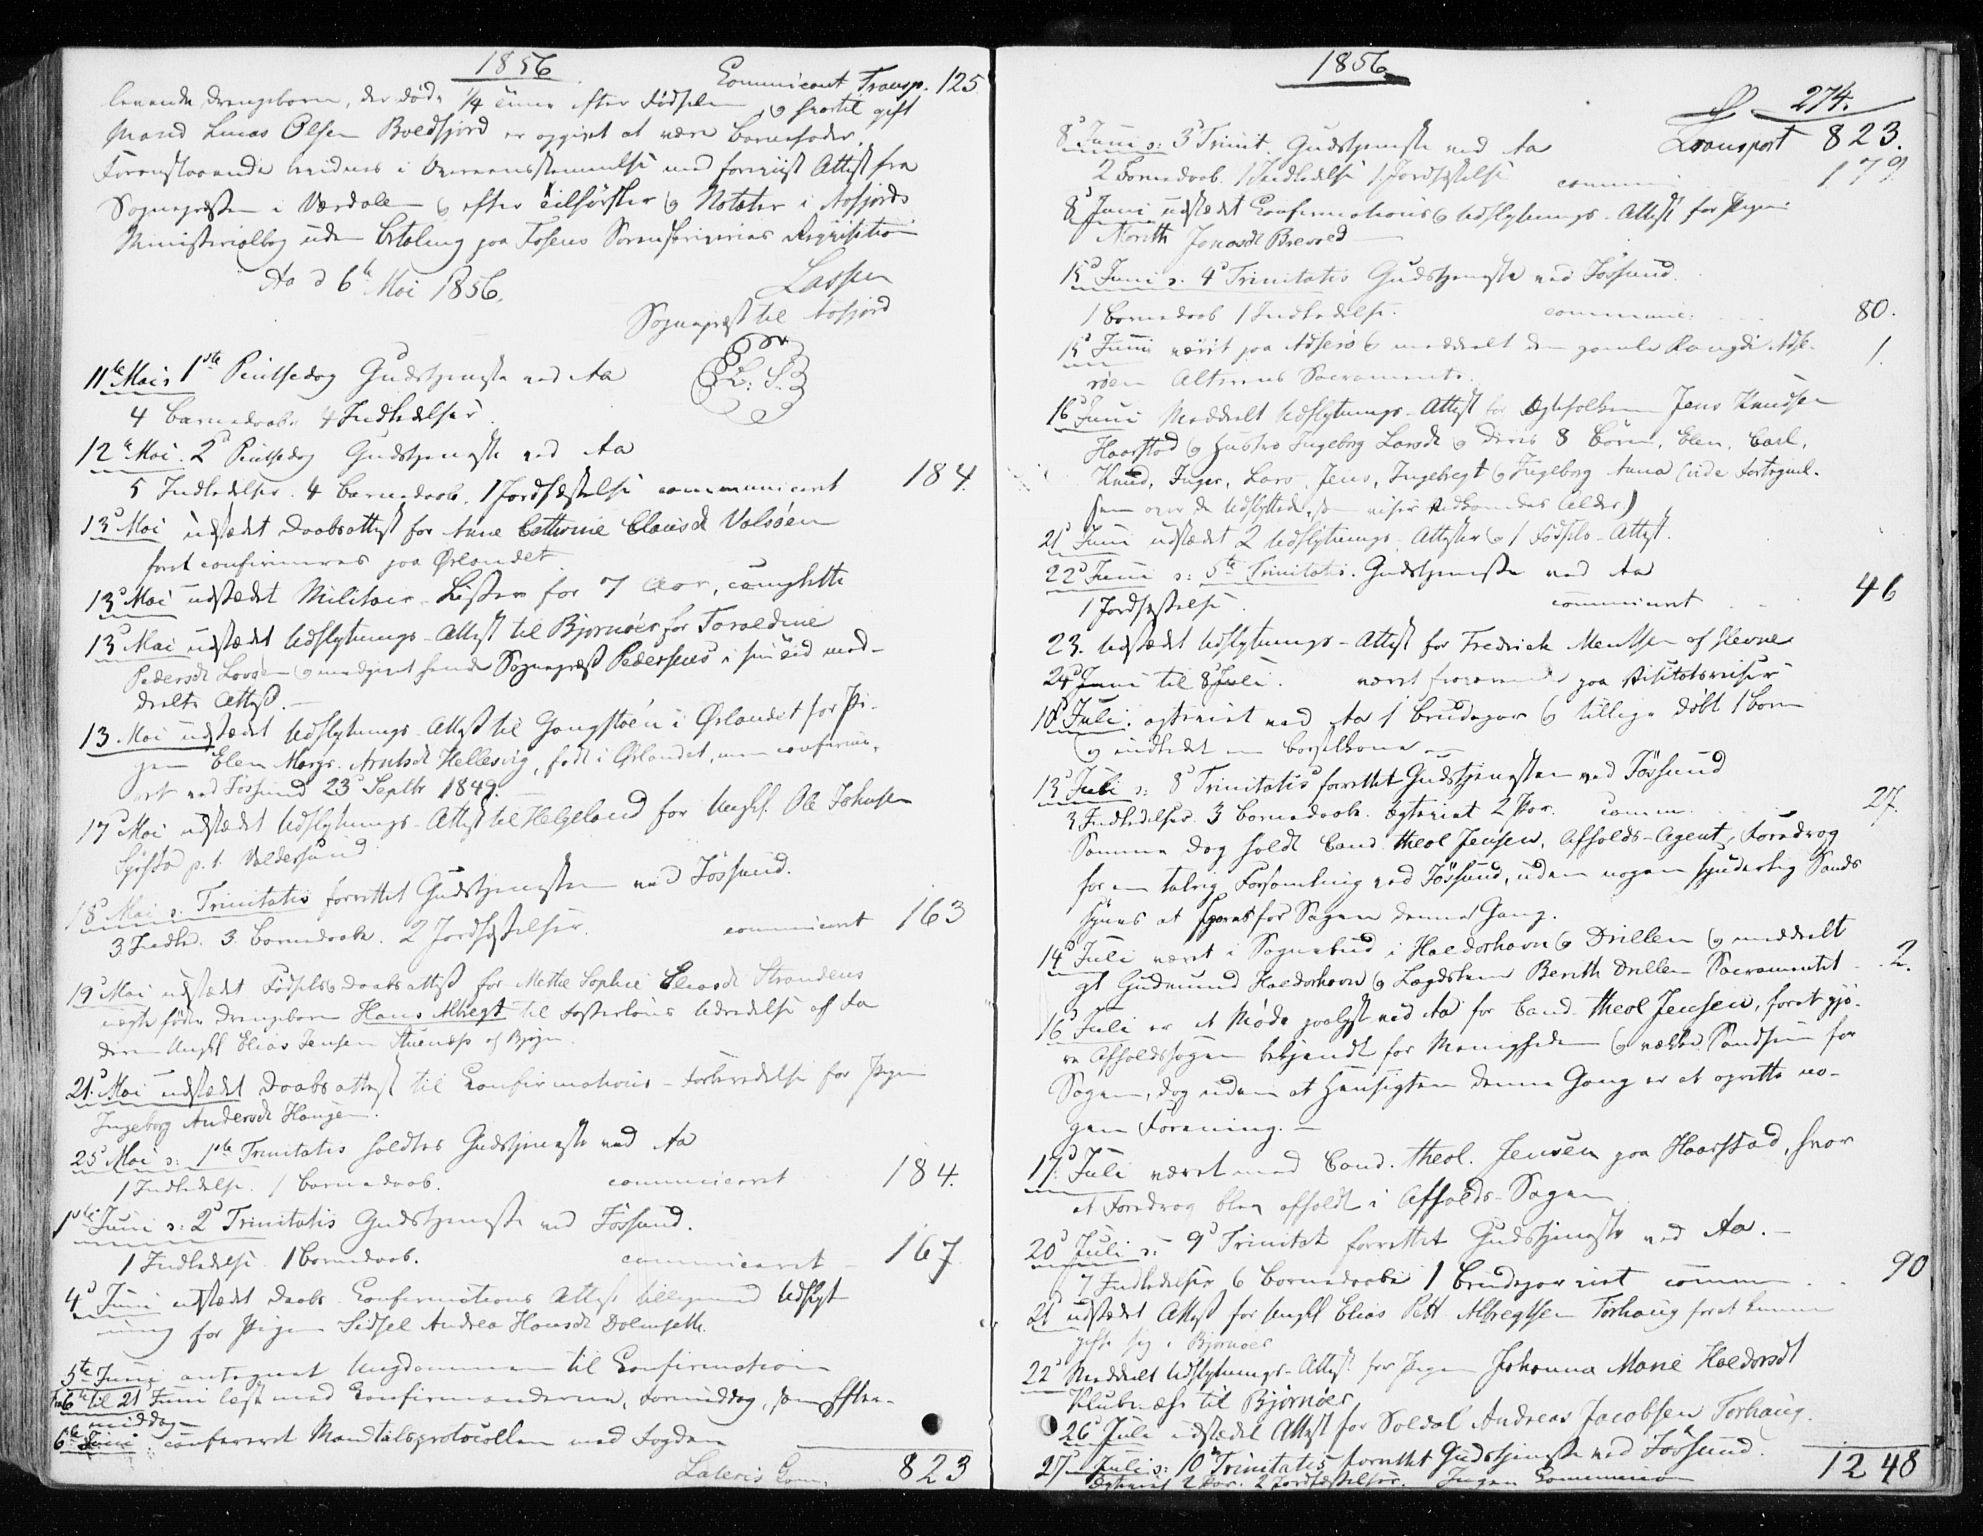 1856
Communicant Transp. 125
levende Drengebarn, der døde 1/4 Time efter Fødselen
Mand Lucas Olsen Boldfjord er opgivet at være Barnefader, og hertil gift
Foranstaaende bevidnes i Overeensstemmelse med foreviist Attest fra
Sognepræsten i Værdalen og efter Tilførsler og Notater i Aafjords
Ministerialbog uden Betaling paa Fosens Sorenskriveries Requisition
Aa d 6te Mai 1856.
Lassen
Sognepræst til Aafjord
L. S.
11te Mai s: 1ste Pintsedag Gudstjeneste ved Aa
4 Barnedaabe 4 Indledelser.
12te Mai. 2d Pintsedag Gudstjeneste ved Aa
5 Indledelser. 4 Barnedaab. 1 Jordfæstelse communiceret 184.
13d Mai udstædt Daabsattest for Anne Cathrine Clausdt Valsøen
foret confirmeres paa Ørlandet
13d Mai udstædt Militair-Lister for 7 Aar, complette
13d Mai udstædt Udflytnings-Attest til Bjørnøer for Taraldine
Pedersdt og medgivet hende Sognepræst Pedersens i sin Tid med-
deelte Attest.
13 Mai udstædt Udflytnings-Attest til Gangstøen i Ørlandet for Pi-
gen Elen Margr. Arntsdt Hellesvig, født i Ørlandet, men confirme-
ret ved Jøssund 23d Septbr 1849.
17d Mai udstædt Udflytnings-Attest til Helgeland for Ungkl. Ole Johnsen
p. t. Valdersund
18d Mai s: Trinitatis forrettet Gudstjenesten ved Jøssund.
3 Indled. 3 Barnedaab. 2 Jordfæstelser. communiceret 163
19d Mai udstædt Fødsels og Daabsattest for Mette Sophie Eliasdt Strandens
uægte fødte Drengebarn Hans Albregt til Fosterløns Udredelse af Fa
deren Ungkl Elias Jensen af Bjugn.
21d Mai udstædt Daabsattest til Confirmations-Forberedelse for Pigen
Ingeborg Andersdt Haugen.
25d Mai s: 1ste Trinitatis holdtes Gudstjeneste ved Aa
1 Indledelse. 1 Barnedaab. communiceret 184.
1ste Juni s: 2d Trinitatis Gudstjeneste ved Jøssund.
1 Indledelse 1 Barnedaab. communiceret 167
4d Juni udstædt Daabs Confirmations Attest tilligemed Udflyt
ning for Pigen Sidsel Andrea Hansdt
5te Juni antegnet Ungdommen til Confirmation
Fra 6te til 21 Juni læst med Confirmanderne, Formiddag, som Efter-
middag
6te Juni confereret Mandtalsprotocollen med Fogden
Lateris Com. 823
1856
274.
Transport 823.
8d Juni s: 3d Trinit. Gudstjeneste ved Aa
2 Barnedaab. 1 Indledelse 1 Jordfæstelse commun 179
8d Juni udstædt Confirmations og Udflytnings-Attest for Pigen
Marith Jonasdt Brevold
15d Juni s. 4d Trinitatis Gudstjeneste ved Jøssund.
1 Barnedaab 1 Indledelse. communic: 80.
15d Juni været paa Adserø og meddeelt den gamle Rangdi Ads-
røen Alterens Sacramente. 1.
16d Juni Meddeelt Udflytnings-Attest for Ægtefolkene Jens Knudsen
Haarstad og Hustru Ingeborg Larsdt og Deres 8 Børn, Elen, Carl,
Knud, Inger, Lars, Jens, Ingebregt og Ingeborg Anna (vide Fortegnel-
sen over de Udflyttede, som viser Vedkomdes Alder)
21d Juni udstædt 2 Udflytnings-Attester og 1 Fødsels-Attest.
22d Juni s: 5te Trinitatis. Gudstjeneste ved Aa
1 Jordfæstelse communiceret 46
23. udstædt Udflytnings-Attest for Fredrich Mentsen af Hevne
24d Juni til 8d Juli. været fraværende paa Visitatsreiser
10d Juli. egteviet ved Aa 1 Brudepar og tillige døbt 1 Barn
og indledet en Barselkone
13d Juli s: 8d Trinitatis forrettet Gudstjenesten ved Jøssund
3 Indledelser. 3 Barnedaab. Egteviet 2 Par. comm. 27.
Samme Dag holdt Cand. theol Jensen, Afholds-Agent, Foredrag
for en talrig Forsamling ved Jøssund, uden nogen synderlig Sands
synes at spores for Sagen denne Gang.
14d Juli været i Sognebud i Haldorhavn og Drillen og meddeelt
gl Gudmund Haldorhavn og Lægdslem Berith Drillen Sacramentet 2.
16d Juli er et Møde paalyst ved Aa for Cand. theol Jensen, foret gjø-
re Afholdssagen bekjendt for Menigheden og vække Sandsen for
Sagen, dog uden at Hensigten denne Gang er at oprette no-
gen Forening.
17d Juli været med Cand. theol. Jensen paa Haarstad, hvor
et Foredrag blev afholdt i Afholds-Sagen
20d Juli s: 9d Trinitat forrettet Gudstjeneste ved Aa.
7 Indledelser 6 Barnedaabe 1 Brudepar viet commun 90
21 udstædt Attest for Ungkl Elias Pett Albregtsen Torhaug foret kunne
gifte sig i Bjørnøer
22d Meddeelt Udflytnings-Attest for Pigen Johanna Marie Haldorsdt
til Bjørnøer
26d Juli udstædt Attest for Soldat Andreas Jacobsen Torhaug.
27d Juli s: 10d Trinitatis forrettet Gudstjeneste ved Jøssund.
Egteviet 2 Par. 2 Jordfæstelser. Ingen Communion
1248